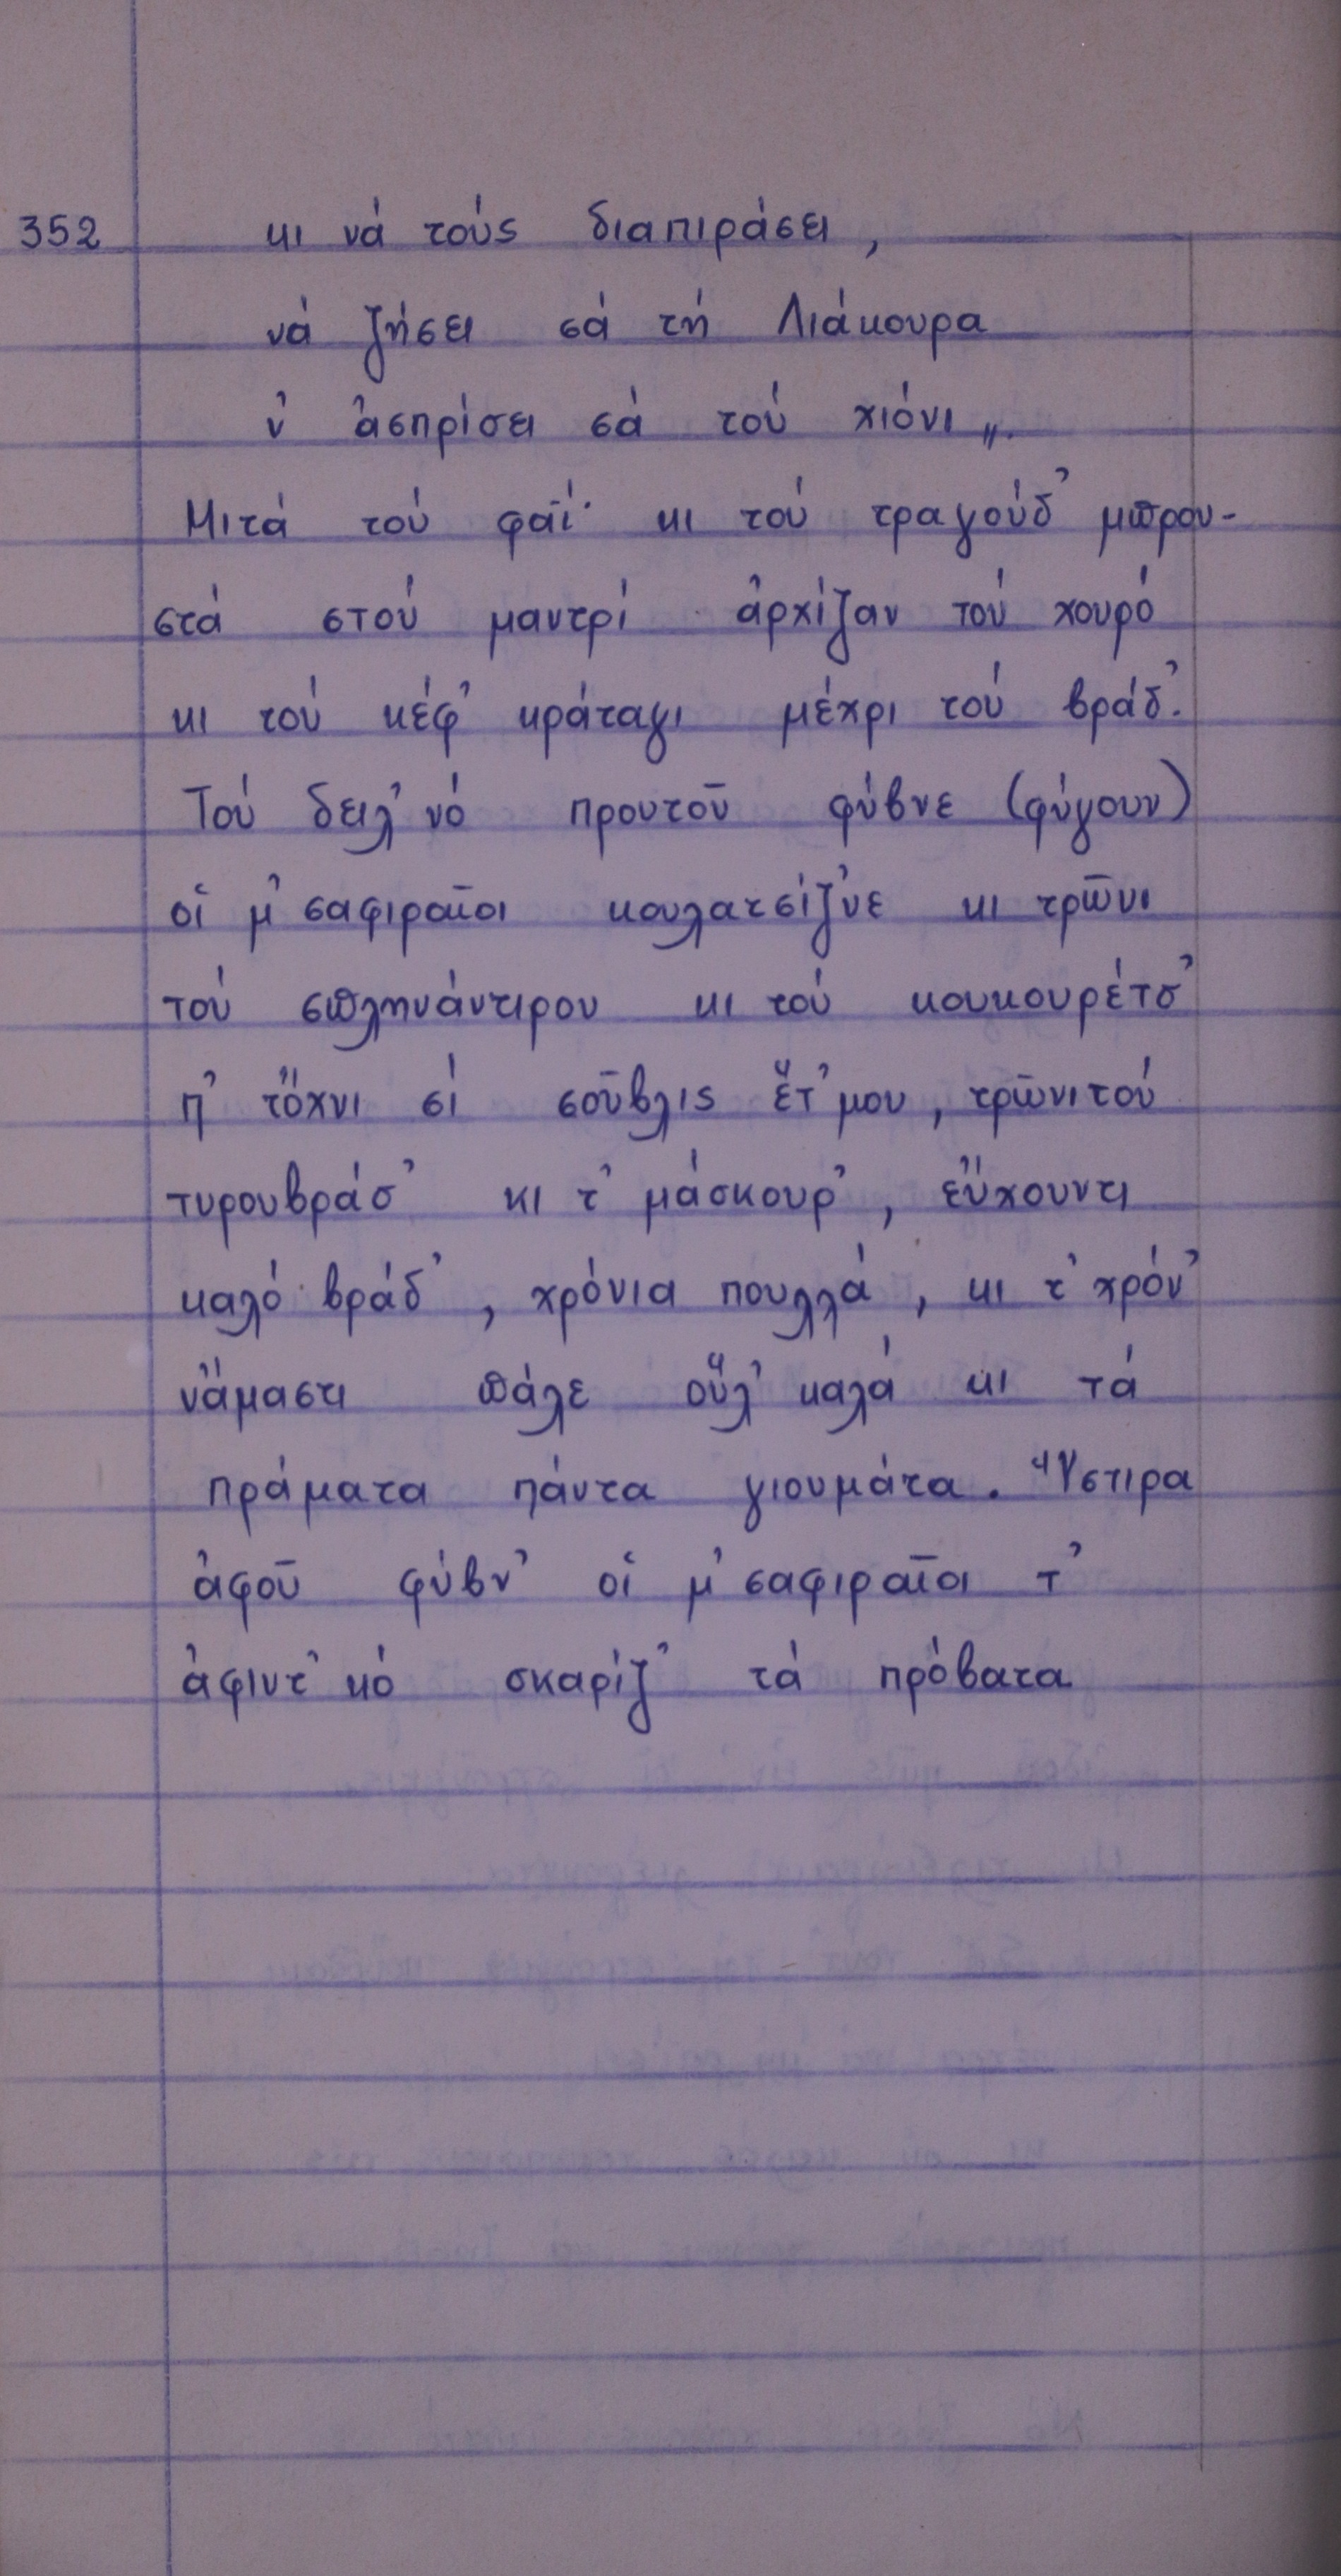 352 κι νά τούς διαπιράσει,
νά ζήσει σά τή Λιάκουρα
ν' ἀσπρίσει σά τού χιόνι „.
Μιτά τού φαΐ κι τού τραγούδ' μπρου-
στά στού μαντρί ἀρχίζαν τού χουρό
κι τού κέφ' κράταγι μέχρι τού βράδ'.
Τού δειλ'νό προυτοῦ φύβνε (φύγουν)
οἱ μ'σαφιραῖοι κουλατσίζ'νε κι τρῶνι
τού σπληνάντιρου κι τού κουκουρέτσ'
π' τὄχνι σί σοῦβλις ἕτ'μου, τρῶνι τού
τυρουβράσ' κι τ' μάσκουρ', εὔχουντι
καλό βράδ', χρόνια πουλλά, κι τ' χρόν'
νἄμαστι πάλε οὕλ' καλά κι τά
πράματα πάντα γιουμάτα. Ὕστιρα
ἀφοῦ φύβν' οἱ μ'σαφιραῖοι τ'
ἀφιντ'κό σκαρίζ' τά πρόβατα